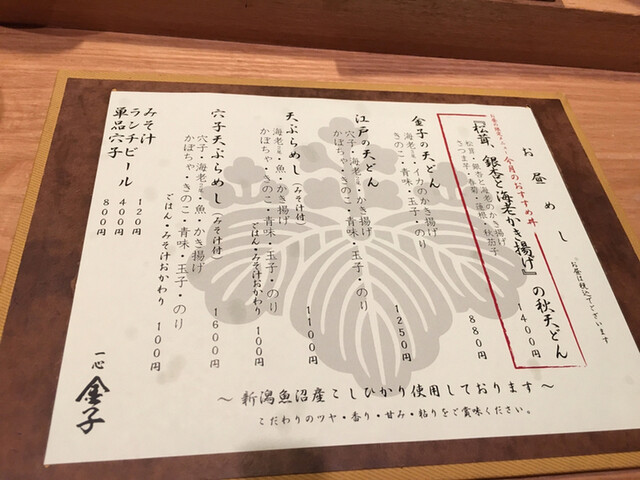 お昼めし
お昼は税込でございます
今月のおすすめ丼
『松茸、銀杏と海老かき揚げ』の秋天どん
1400円
金子の天どん
880円
江戸の天どん
穴子・海老・魚・かき揚げ
かぼちゃ・きのこ・青味・玉子・のり
1250円
天ぷらめし（みそ汁付）
海老・魚・かき揚げ
かぼちゃ・きのこ・青味・玉子・のり
1100円
ごはん・みそ汁おかわり 100円
穴子天ぷらめし（みそ汁付）
穴子・海老・魚・かき揚げ
かぼちゃ・きのこ・青味・玉子・のり
1600円
ごはん・みそ汁おかわり 100円
みそ汁 120円
ランチビール 400円
単品穴子 800円
〜新潟魚沼産こしひかり使用しております〜
こだわりのツヤ・香り・甘み・粘りをご賞味ください。
一心 金子